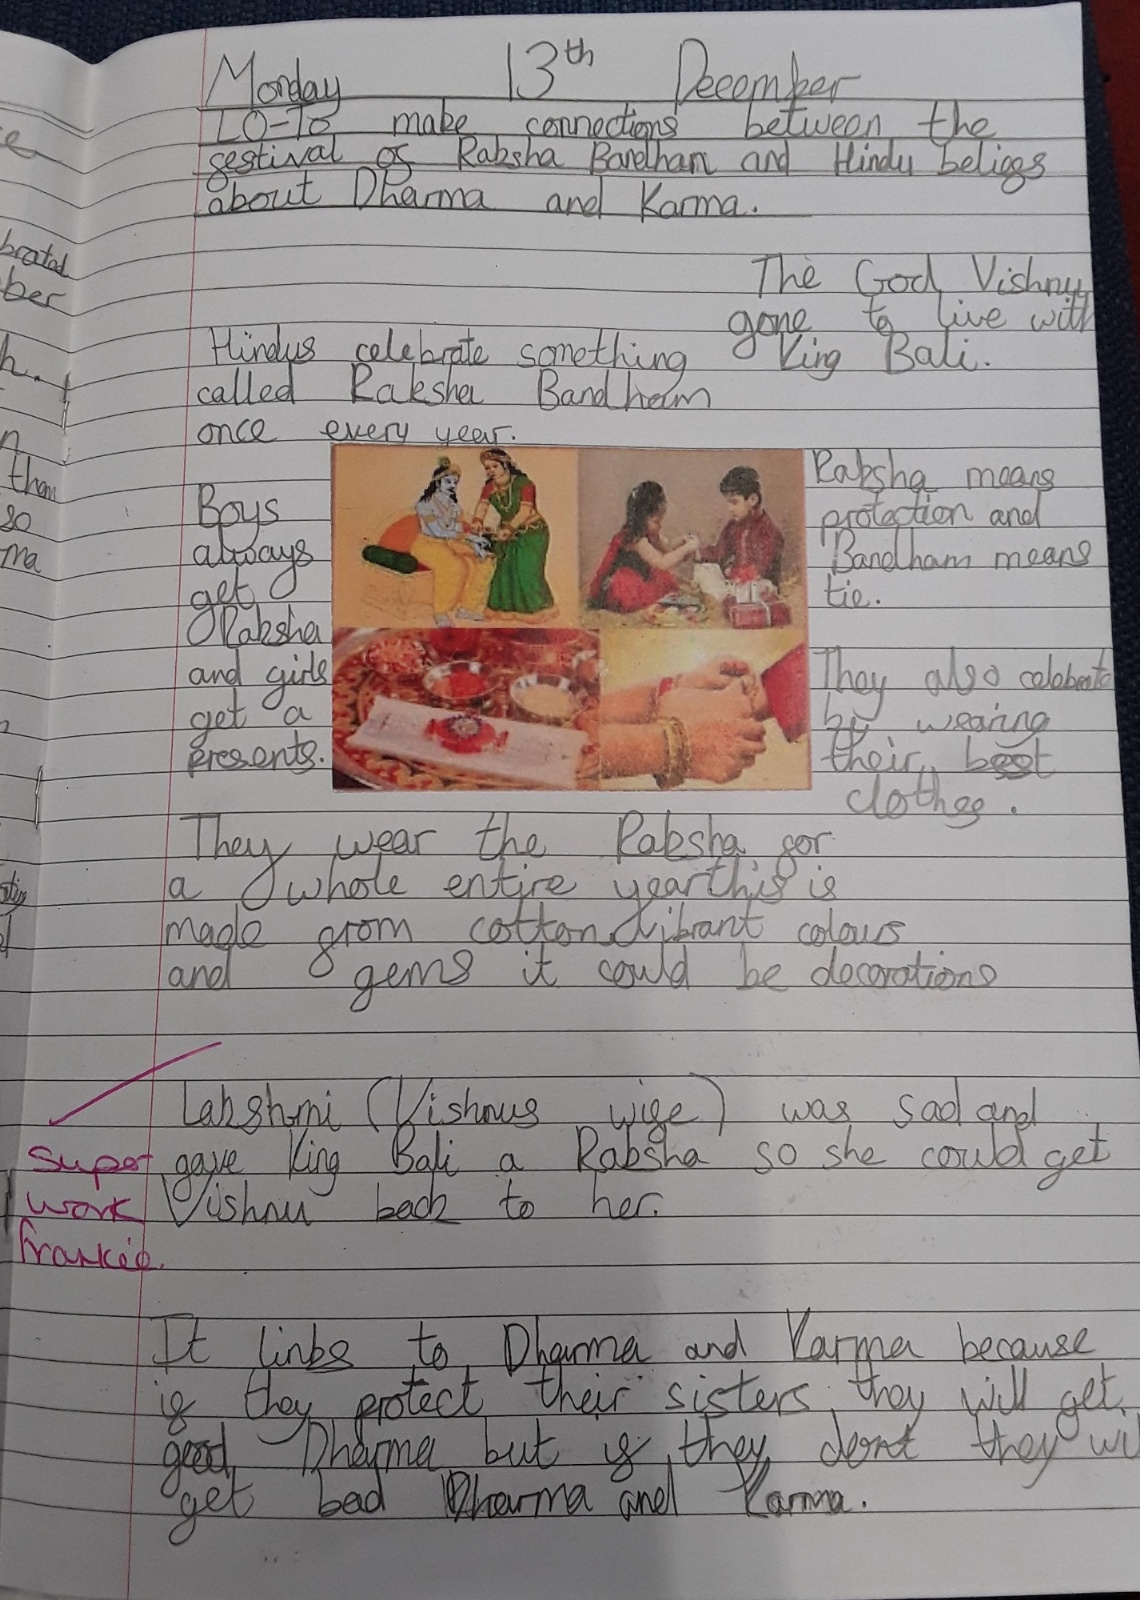 Monday 13th December
LO-To make connections between the
festival of Raksha Bandham and Hindu beliefs
about Dharma and Karma.
The God Vishnu
gone to live with
King Bali.
Hindus celebrate something
called Raksha Bandham
once every year.
Boys
always
get
Raksha
and girls
get a
presents.
Raksha means
protection and
Bandham means
tie.
They also celebrate
by wearing
their best
clothes.
They wear the Raksha for
a whole entire year this is
made from cotton vibrant colours
and gems it could be decorations
Lakshmi (Vishnus wife) was sad and
gave King Bali a Raksha so she could get
Vishnu back to her.
super
work
frankie.
It links to Dharma and Karma because
if they protect their sisters they will get
good Dharma but if they dont they wi
get bad Dharma and Karma.
than
so
ma
ber